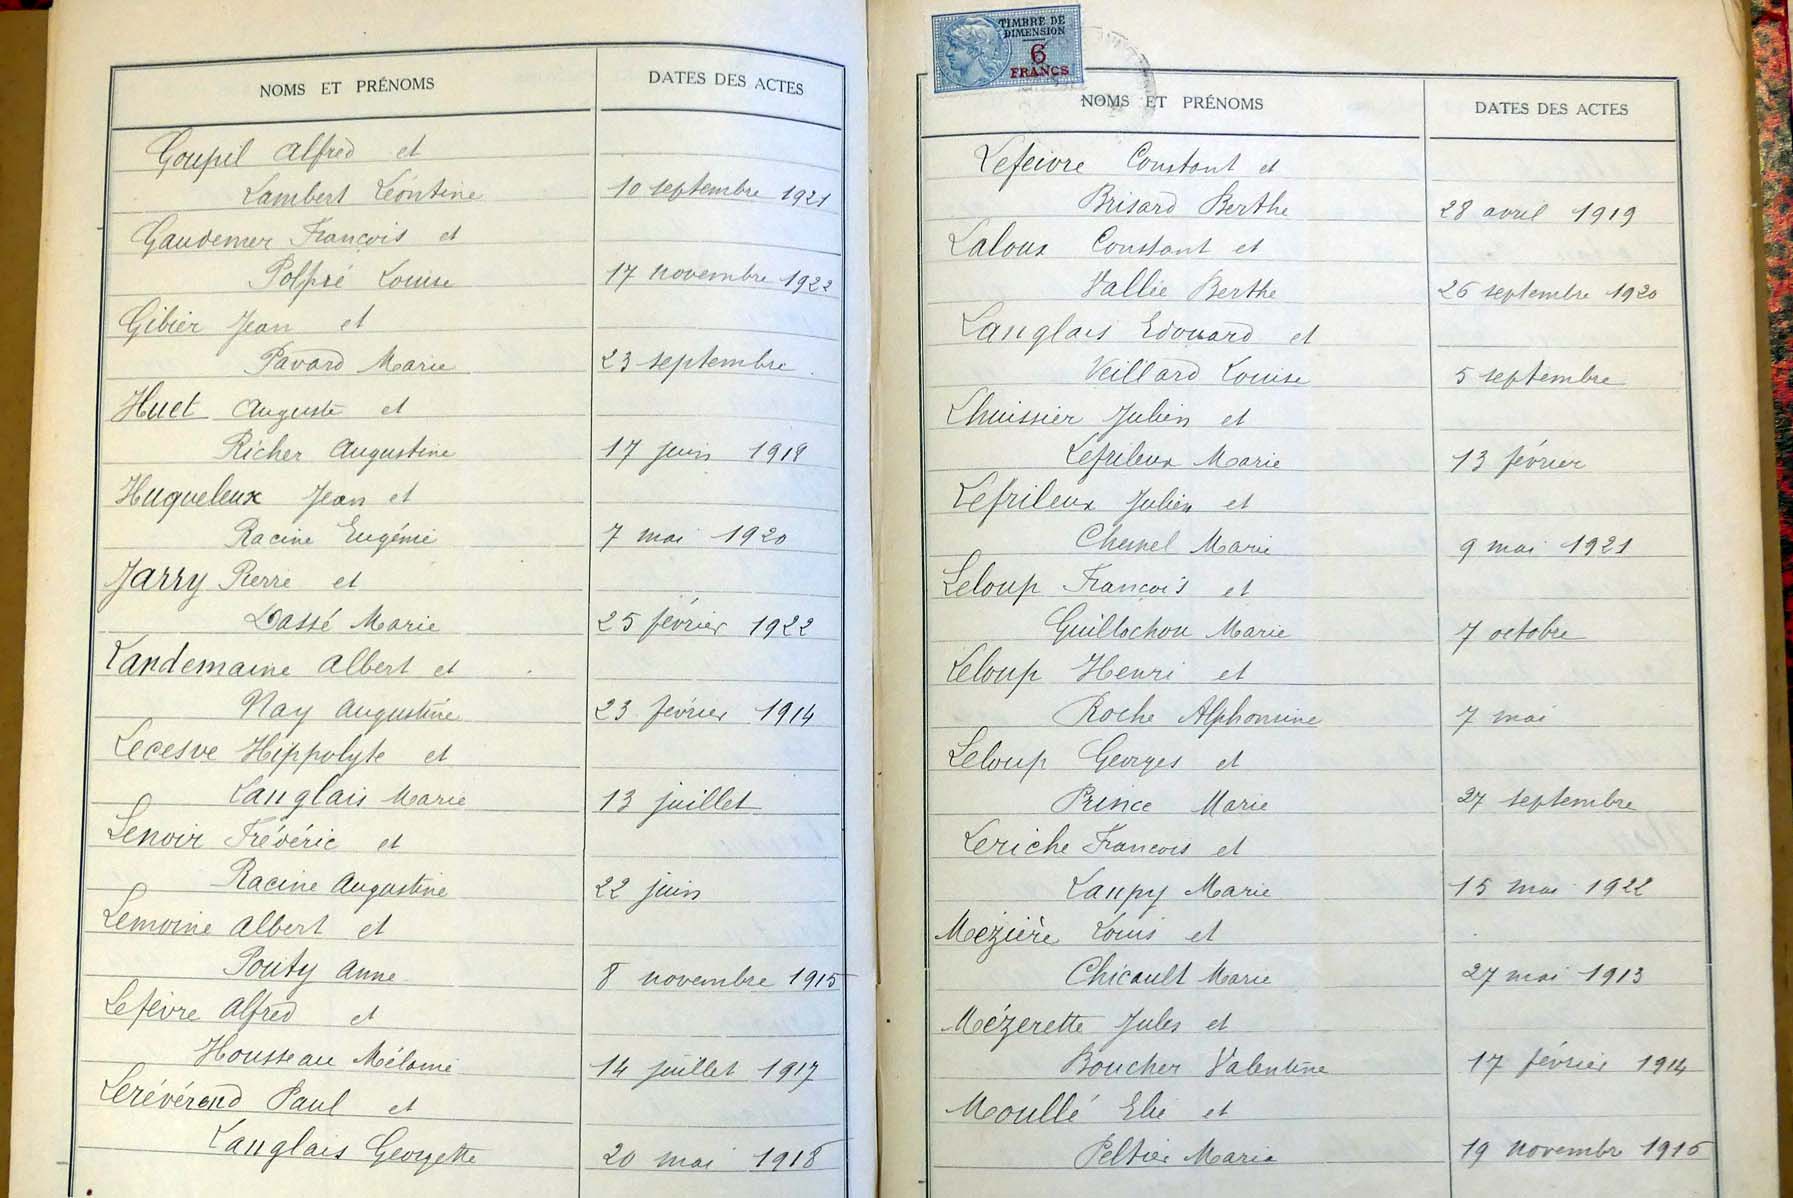 NOMS ET PRÉNOMS DATES DES ACTES
Goupil Alfred et
Lambert Léontine 10 septembre 1921
Gaudemer François et
Polpré Louise 17 novembre 1922
Gibier Jean et
Pavard Marie 23 septembre
Huet Auguste et
Richer Augustine 17 juin 1918
Huqueleux Jean et
Racine Eugénie 7 mai 1920
Jarry Pierre et
Dassé Marie 25 février 1922
Landemaine Albert et
Nay Augustine 23 février 1914
Lecesve Hippolyte et
Langlais Marie 13 juillet
Lenoir Frédéric et
Racine Augustine 22 juin
Lemoine Albert et
Pouty Anne 8 novembre 1915
Lefeivre Alfred et
Housseau Mélanie 14 juillet 1917
Lerévérend Paul et
Langlais Georgette 20 mai 1918
TIMBRE DE
DIMENSION
6
FRANCS
NOMS ET PRÉNOMS DATES DES ACTES
Lefeivre Constant et
Brisard Berthe 28 avril 1919
Laloux Constant et
Vallée Berthe 26 septembre 1920
Langlais Edouard et
Veillard Louise 5 septembre
Lhuissier Julien et
Lefrileux Marie 13 février
Lefrileux Julien et
Chesnel Marie 9 mai 1921
Leloup François et
Guillochon Marie 7 octobre
Leloup Henri et
Roche Alphonsine 7 mai
Leloup Georges et
Prince Marie 27 septembre
Leriche François et
Laupy Marie 15 mai 1922
Mézière Louis et
Chicault Marie 27 mai 1913
Mézerette Jules et
Boucher Valentine 17 février 1914
Moullé Elie et
Peltier Marie 19 novembre 1916